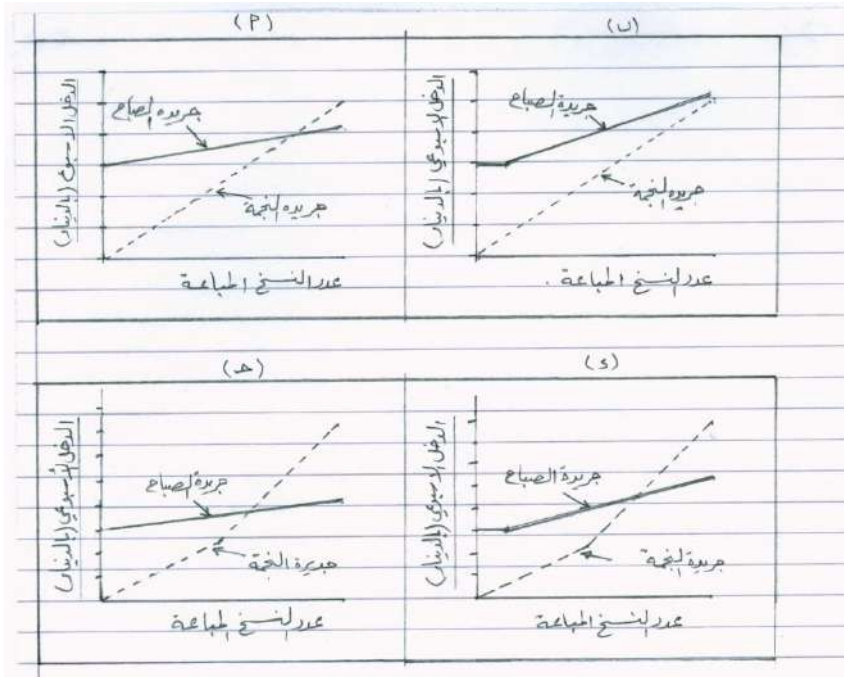 (P)
(ب)
الدخل الأسبوعي (بالدينار)
جريدة الصباح
جريدة النجمة
عدد النسخ المباعة
الدخل الاسبوعي (بالدينار)
جريدة الصباح
جريدة النجمة
عدد النسخ المباعة .
(حـ)
(د)
الدخل الأسبوعي (بالدينار)
جريدة الصباح
جديرة النجمة
عدد النسخ المباعة
الدخل الاسبوعي (بالدينار)
جريدة الصباح
جريدة النجمة
عدد النسخ المباعة